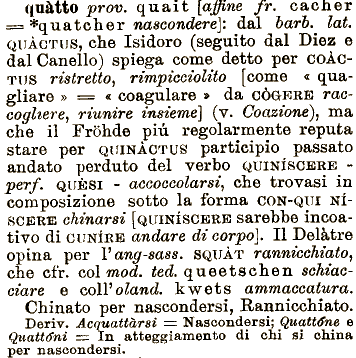 quàtto prov. quait [affine fr. cacher
= *quatcher nascondere]: dal barb. lat.
QUÀCTUS, che Isidoro (seguito dal Diez e
dal Canello) spiega come detto per COÀC-
TUS ristretto, rimpicciolito [come « qua-
gliare » = « coagulare » da CÒGERE rac-
cogliere, riunire insieme] (v. Coazione), ma
che il Fröhde piú regolarmente reputa
stare per QUINÀCTUS participio passato
andato perduto del verbo QUINÍSCERE -
perf. QUÈSI - accoccolarsi, che trovasi in
composizione sotto la forma CON-QUI NÍ-
SCERE chinarsi [QUINÍSCERE sarebbe incoa-
tivo di CUNÍRE andare di corpo]. Il Delàtre
opina per l'ang-sass. SQUÀT rannicchiato,
che cfr. col mod. ted. queetschen schiac-
ciare e coll'oland. kwets ammaccatura.
Chinato per nascondersi, Rannicchiato.
Deriv. Acquattàrsi = Nascondersi; Quattóne e
Quattóni = In atteggiamento di chi si china
per nascondersi.